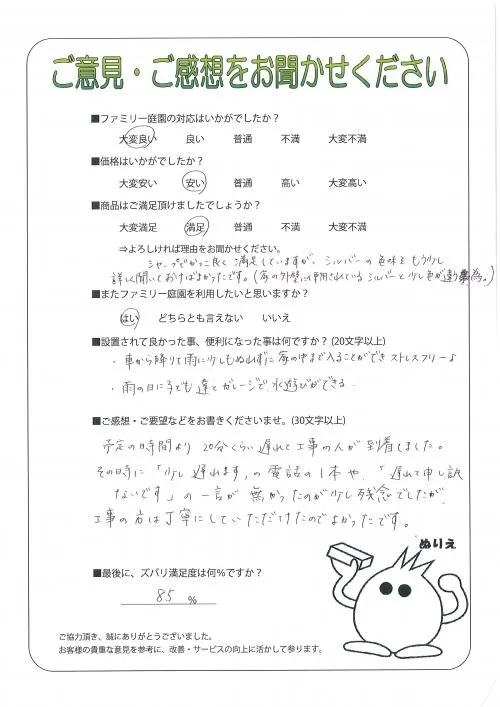 ご意見・ご感想をお聞かせください
■ファミリー庭園の対応はいかがでしたか？
大変良い 良い 普通 不満 大変不満
■価格はいかがでしたか？
大変安い 安い 普通 高い 大変高い
■商品はご満足頂けましたでしょうか？
大変満足 満足 普通 不満 大変不満
⇒よろしければ理由をお聞かせください。
シャープでかっこ良く満足していますが、シルバーの色味をもう少し
詳しく聞いておけばよかったです。(家の外壁に使用されているシルバーと少し色が違う為。)
■またファミリー庭園を利用したいと思いますか？
はい どちらとも言えない いいえ
■設置されて良かった事、便利になった事は何ですか？(20文字以上)
・車から降りて雨に少しもぬれずに家の中まで入ることができストレスフリー♪
・雨の日に子ども達とガレージで、水遊びができる。
■ご感想・ご要望などをお書きくださいませ。(30文字以上)
予定の時間より20分くらい遅れて工事の人が到着しました。
その時に「少し遅れます」の電話の1本や、「遅れて申し訳
ないです」の一言が無かったのが少し残念でしたが、
工事の方は丁寧にしていただけたのでよかったです。
ぬりえ
■最後に、ズバリ満足度は何％ですか？
85 ％
ご協力頂き、誠にありがとうございました。
お客様の貴重な意見を参考に、改善・サービスの向上に活かして参ります。